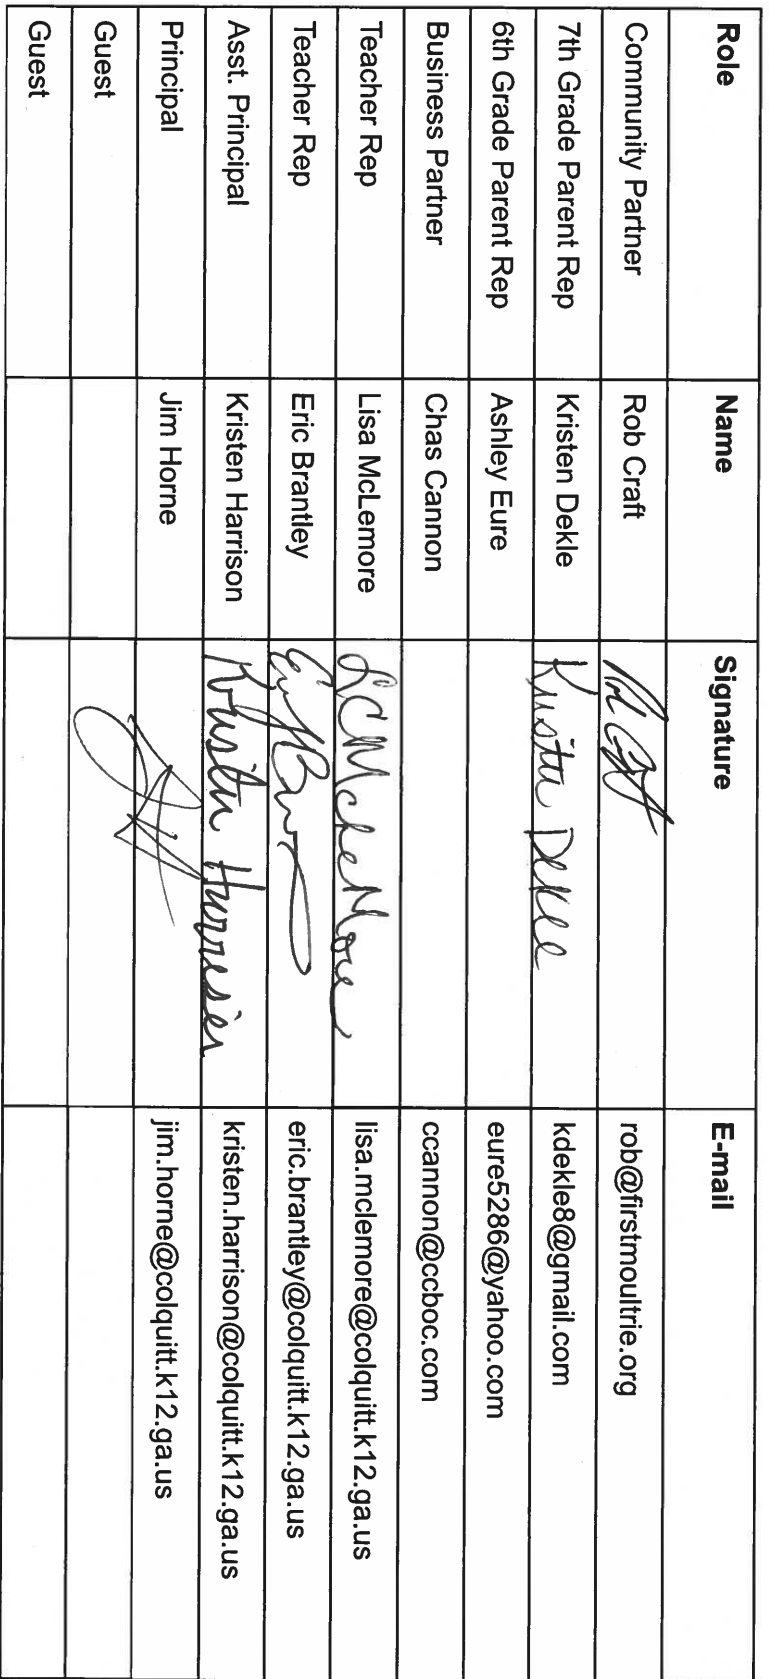 Role Name Signature E-mail
Community Partner Rob Craft Rob Craft rob@firstmoultrie.org
7th Grade Parent Rep Kristen Dekle Kristen Dekle kdekle8@gmail.com
6th Grade Parent Rep Ashley Eure eure5286@yahoo.com
Business Partner Chas Cannon ccannon@ccboc.com
Teacher Rep Lisa McLemore LCMcLeMore lisa.mclemore@colquitt.k12.ga.us
Teacher Rep Eric Brantley eric.brantley@colquitt.k12.ga.us
Asst. Principal Kristen Harrison Kristen Harrison kristen.harrison@colquitt.k12.ga.us
Principal Jim Horne jim.horne@colquitt.k12.ga.us
Guest
Guest